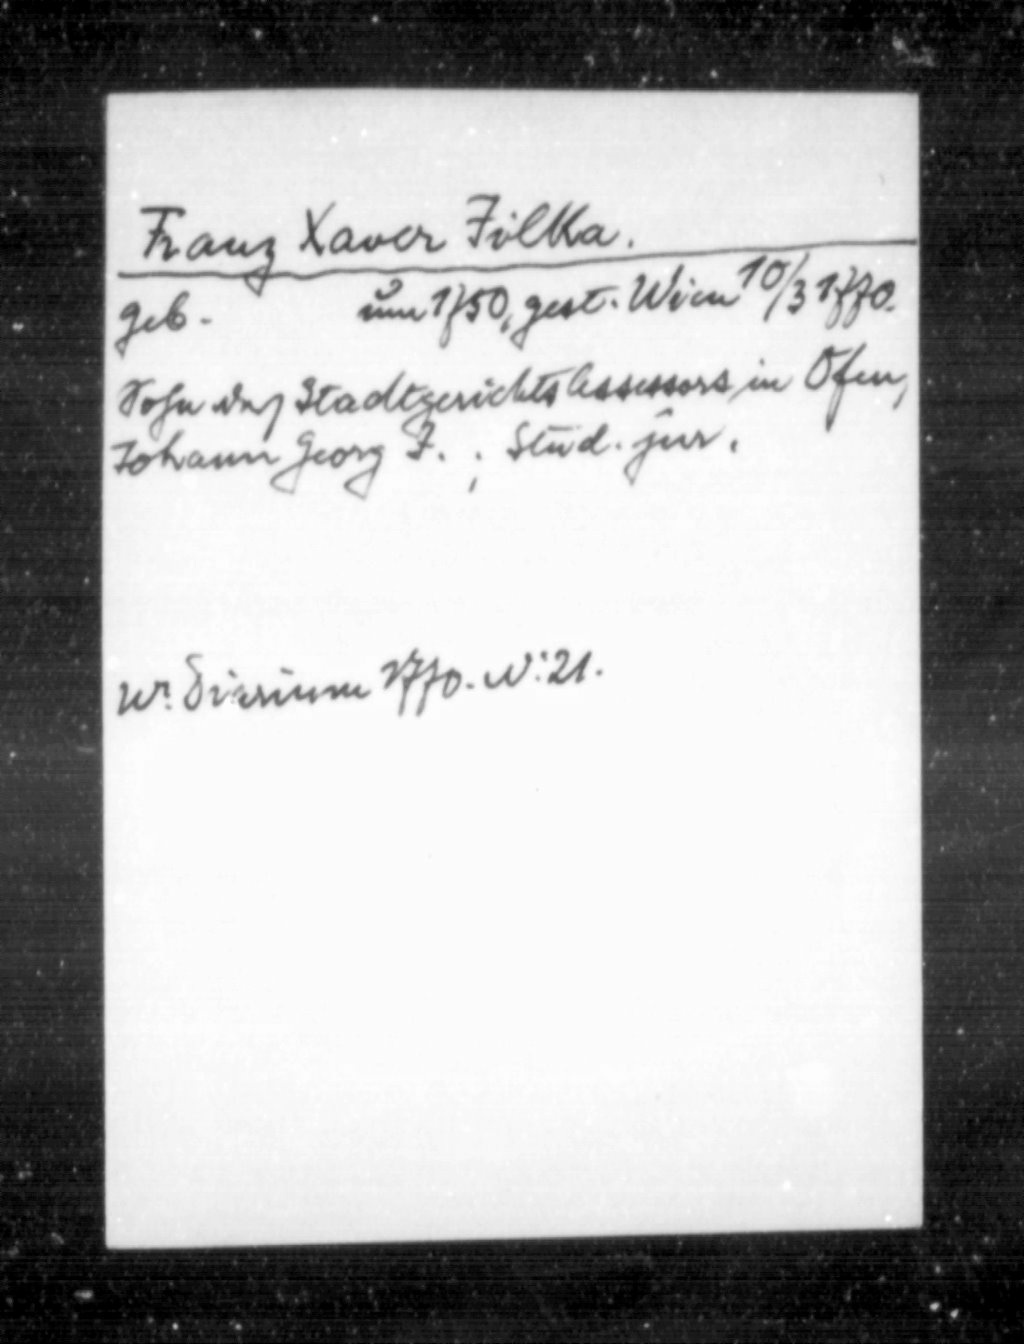 Franz Xaver Filka.
geb. um 1750, gest. Wien 10/3 1770.
Sohn des Stadtgerichts Assessors in Ofen,
Johann Georg F. , Stud. jur.
Wr. Diarium 1770. N: 21.